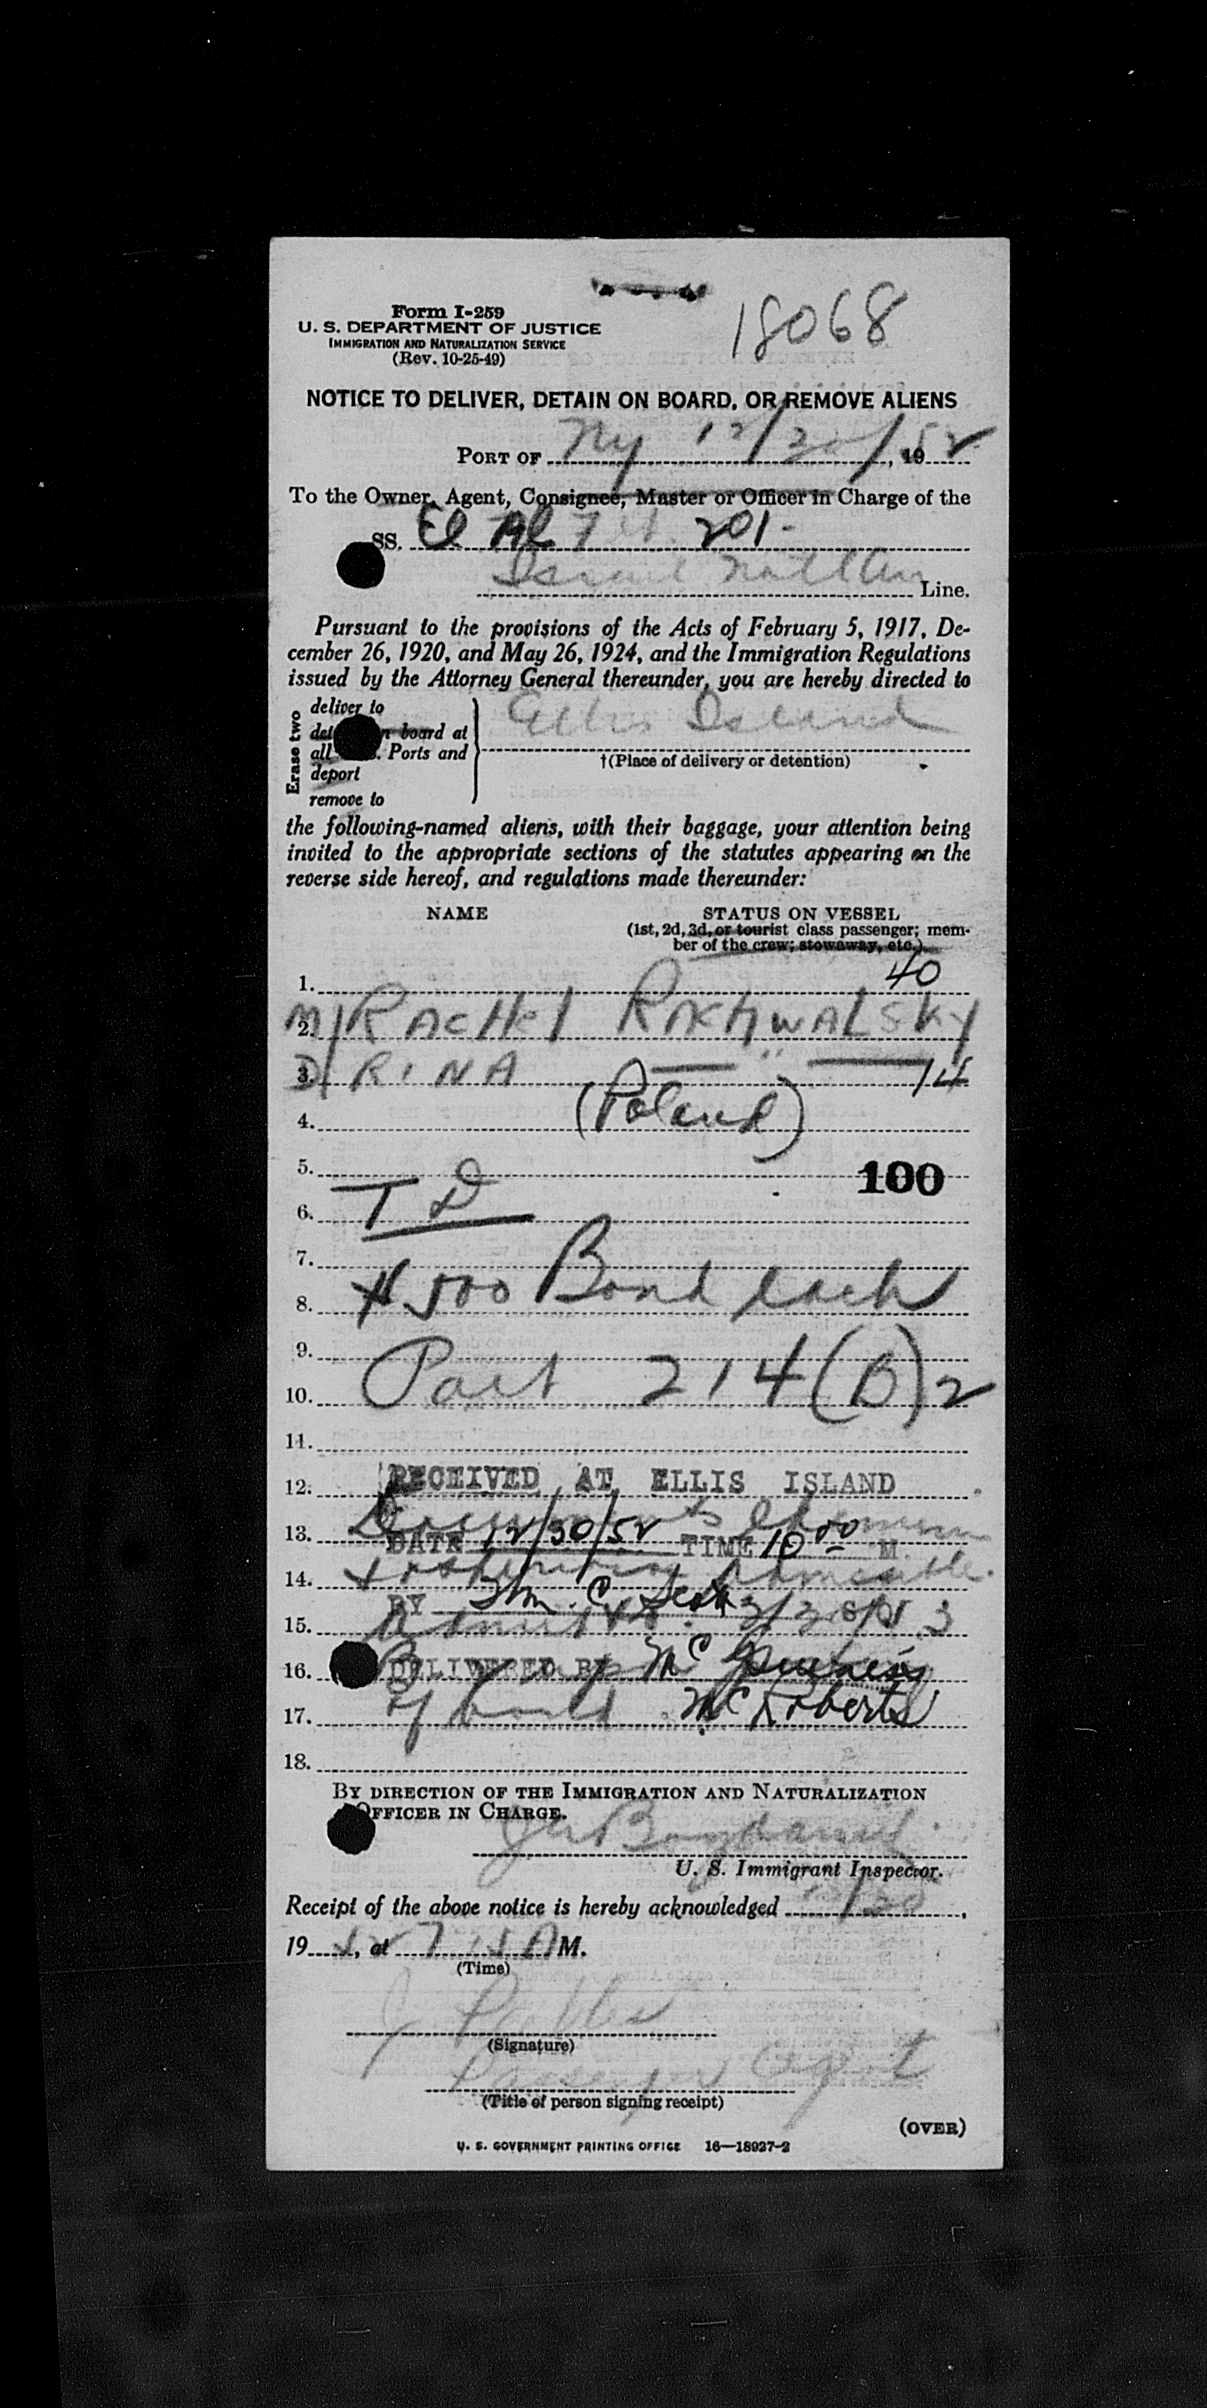 18068
Form I-259
U. S. DEPARTMENT OF JUSTICE
IMMIGRATION AND NATURALIZATION SERVICE
(Rev. 10-25-49)
NOTICE TO DELIVER, DETAIN ON BOARD, OR REMOVE ALIENS
PORT OF NY 12/30/, 1952
To the Owner, Agent, Consignee, Master or Officer in Charge of the
SS. El Al Flt. 201-
Israel Natl Air Line.
Pursuant to the provisions of the Acts of February 5, 1917, De-
cember 26, 1920, and May 26, 1924, and the Immigration Regulations
issued by the Attorney General thereunder, you are hereby directed to
Erase two
deliver to
board at
all Ports and
deport
remove to
Ellis Island
†(Place of delivery or detention)
the following-named aliens, with their baggage, your attention being
invited to the appropriate sections of the statutes appearing on the
reverse side hereof, and regulations made thereunder:
NAME STATUS ON VESSEL
(1st, 2d, 3d, or tourist class passenger; mem-
ber of the crew; stowaway, etc.)
1. 40
2. M/ RACHEL RAKHWALSKY
3. D/ RINA — " — 14
4. (Poland)
5. 100
6. T D
7.
8. $500 Bond each
9.
10. Part 214(B)2
11.
12. RECEIVED AT ELLIS ISLAND
13. DATE 12/30/52 TIME 10 00 M.
14.
15. BY Wm. C.
16. DELIVERED BY Mc
17. of bond Mc Roberts
18.
BY DIRECTION OF THE IMMIGRATION AND NATURALIZATION
OFFICER IN CHARGE.
U. S. Immigrant Inspector.
Receipt of the above notice is hereby acknowledged 12/30,
1952, at 7 15 A M.
(Time)
J
(Signature)
Passenger Agent
(Title of person signing receipt)
(OVER)
U. S. GOVERNMENT PRINTING OFFICE 16—18927-2